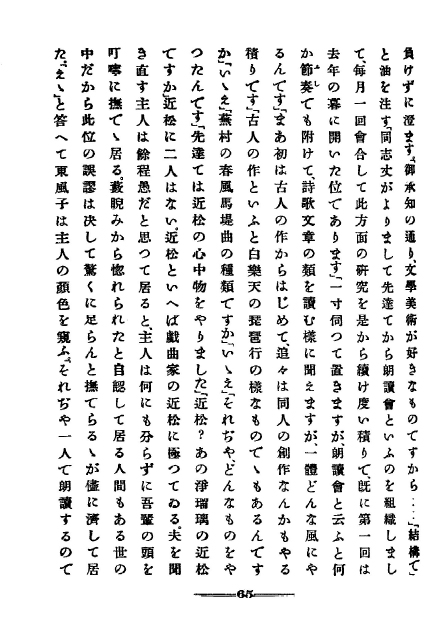 負けずに澄ます。「御承知の通り、文學美術が好きなものですから……」「結構で」
と油を注す。「同志丈がよりまして先達てから朗讀會といふのを組織しまし
て、毎月一回會合して此方面の研究を是から續け度い積りで、既に第一回は
去年の暮に開いた位であります」「一寸伺つて置きますが、朗讀會と云ふと何
か節奏でも附けて、詩歌文章の類を讀む樣に聞えますが、一體どんな風にや
るんです」「まあ初は古人の作からはじめて、追々は同人の創作なんかもやる
積りです」「古人の作といふと白樂天の琵琶行の樣なものでゝもあるんです
か」「いゝえ」「蕪村の春風馬堤曲の種類ですか」「いゝえ」「それぢや、どんなものをや
つたんです」「先達ては近松の心中物をやりました」「近松？あの淨瑠璃の近松
ですか」近松に二人はない。近松といへば戲曲家の近松に極つてゐる。夫を聞
き直す主人は餘程愚だと思つて居ると、主人は何にも分らずに吾輩の頭を
叮嚀に撫でゝ居る。藪睨みから惚れられたと自認して居る人間もある世の
中だから此位の誤謬は決して驚くに足らんと撫でらるゝが儘に濟して居
た。「えゝ」と答へて東風子は主人の顏色を窺ふ。「それぢや一人で朗讀するので
65